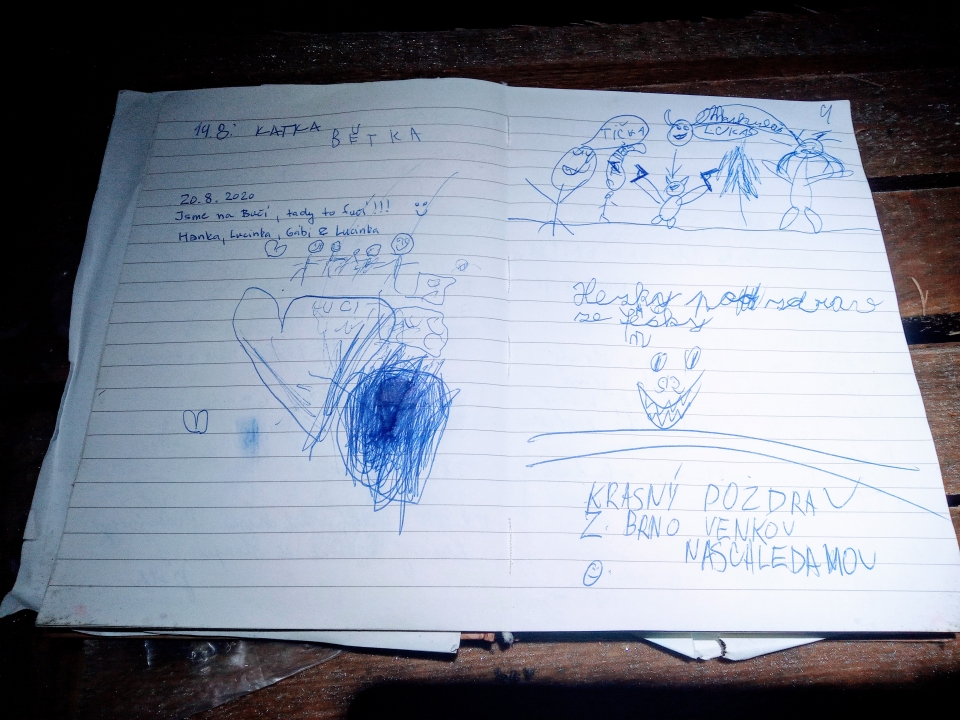 19.8. KATKA BĚTKA
20.8.2020
Jsme na Bučí, tady to fučí!!!
Hanka, Lucinka, Gábi & Lucinka
TIČKA
LUKAS
Hezky pozdrav
ze
KRASNÝ POZDRAV
Z BRNO VENKOV
NASCHLEDAMOU